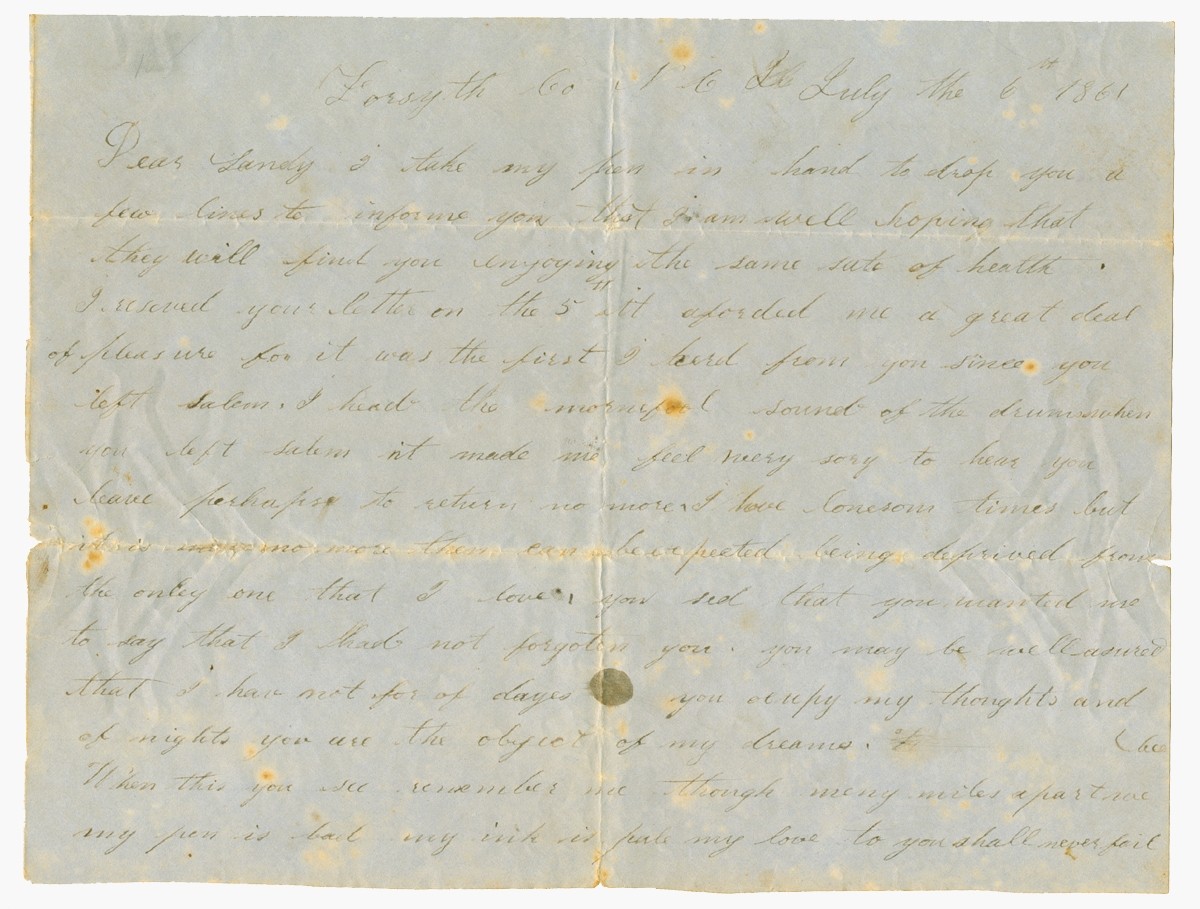 Forsyth Co N C July the 6 st 1861
Dear Sandy I take my pen in hand to drop you a
few lines to informe you that I am well hoping that
they will find you enjoying the same sate of health.
I reseved your letter on the 5 it aforded me a great deal
of pleasure for it was the first I herd from you since you
left salem. I head the mornefool sound of the drum when
you left salem it made me feel very sory to hear you
leave perhaps to return no more. I have lonesom times but
it is no more then can be expected being deprived from
the onley one that I love. you sed that you wanted me
to say that I had not forgoten you. you may be well asured
that I hav not for of dayes you ocupy my thoughts and
of nights you are the obgect of my dreams. (bee
When this you see remember me though meny miles apart we
my pen is bad my ink is pale my love to you shall never fail